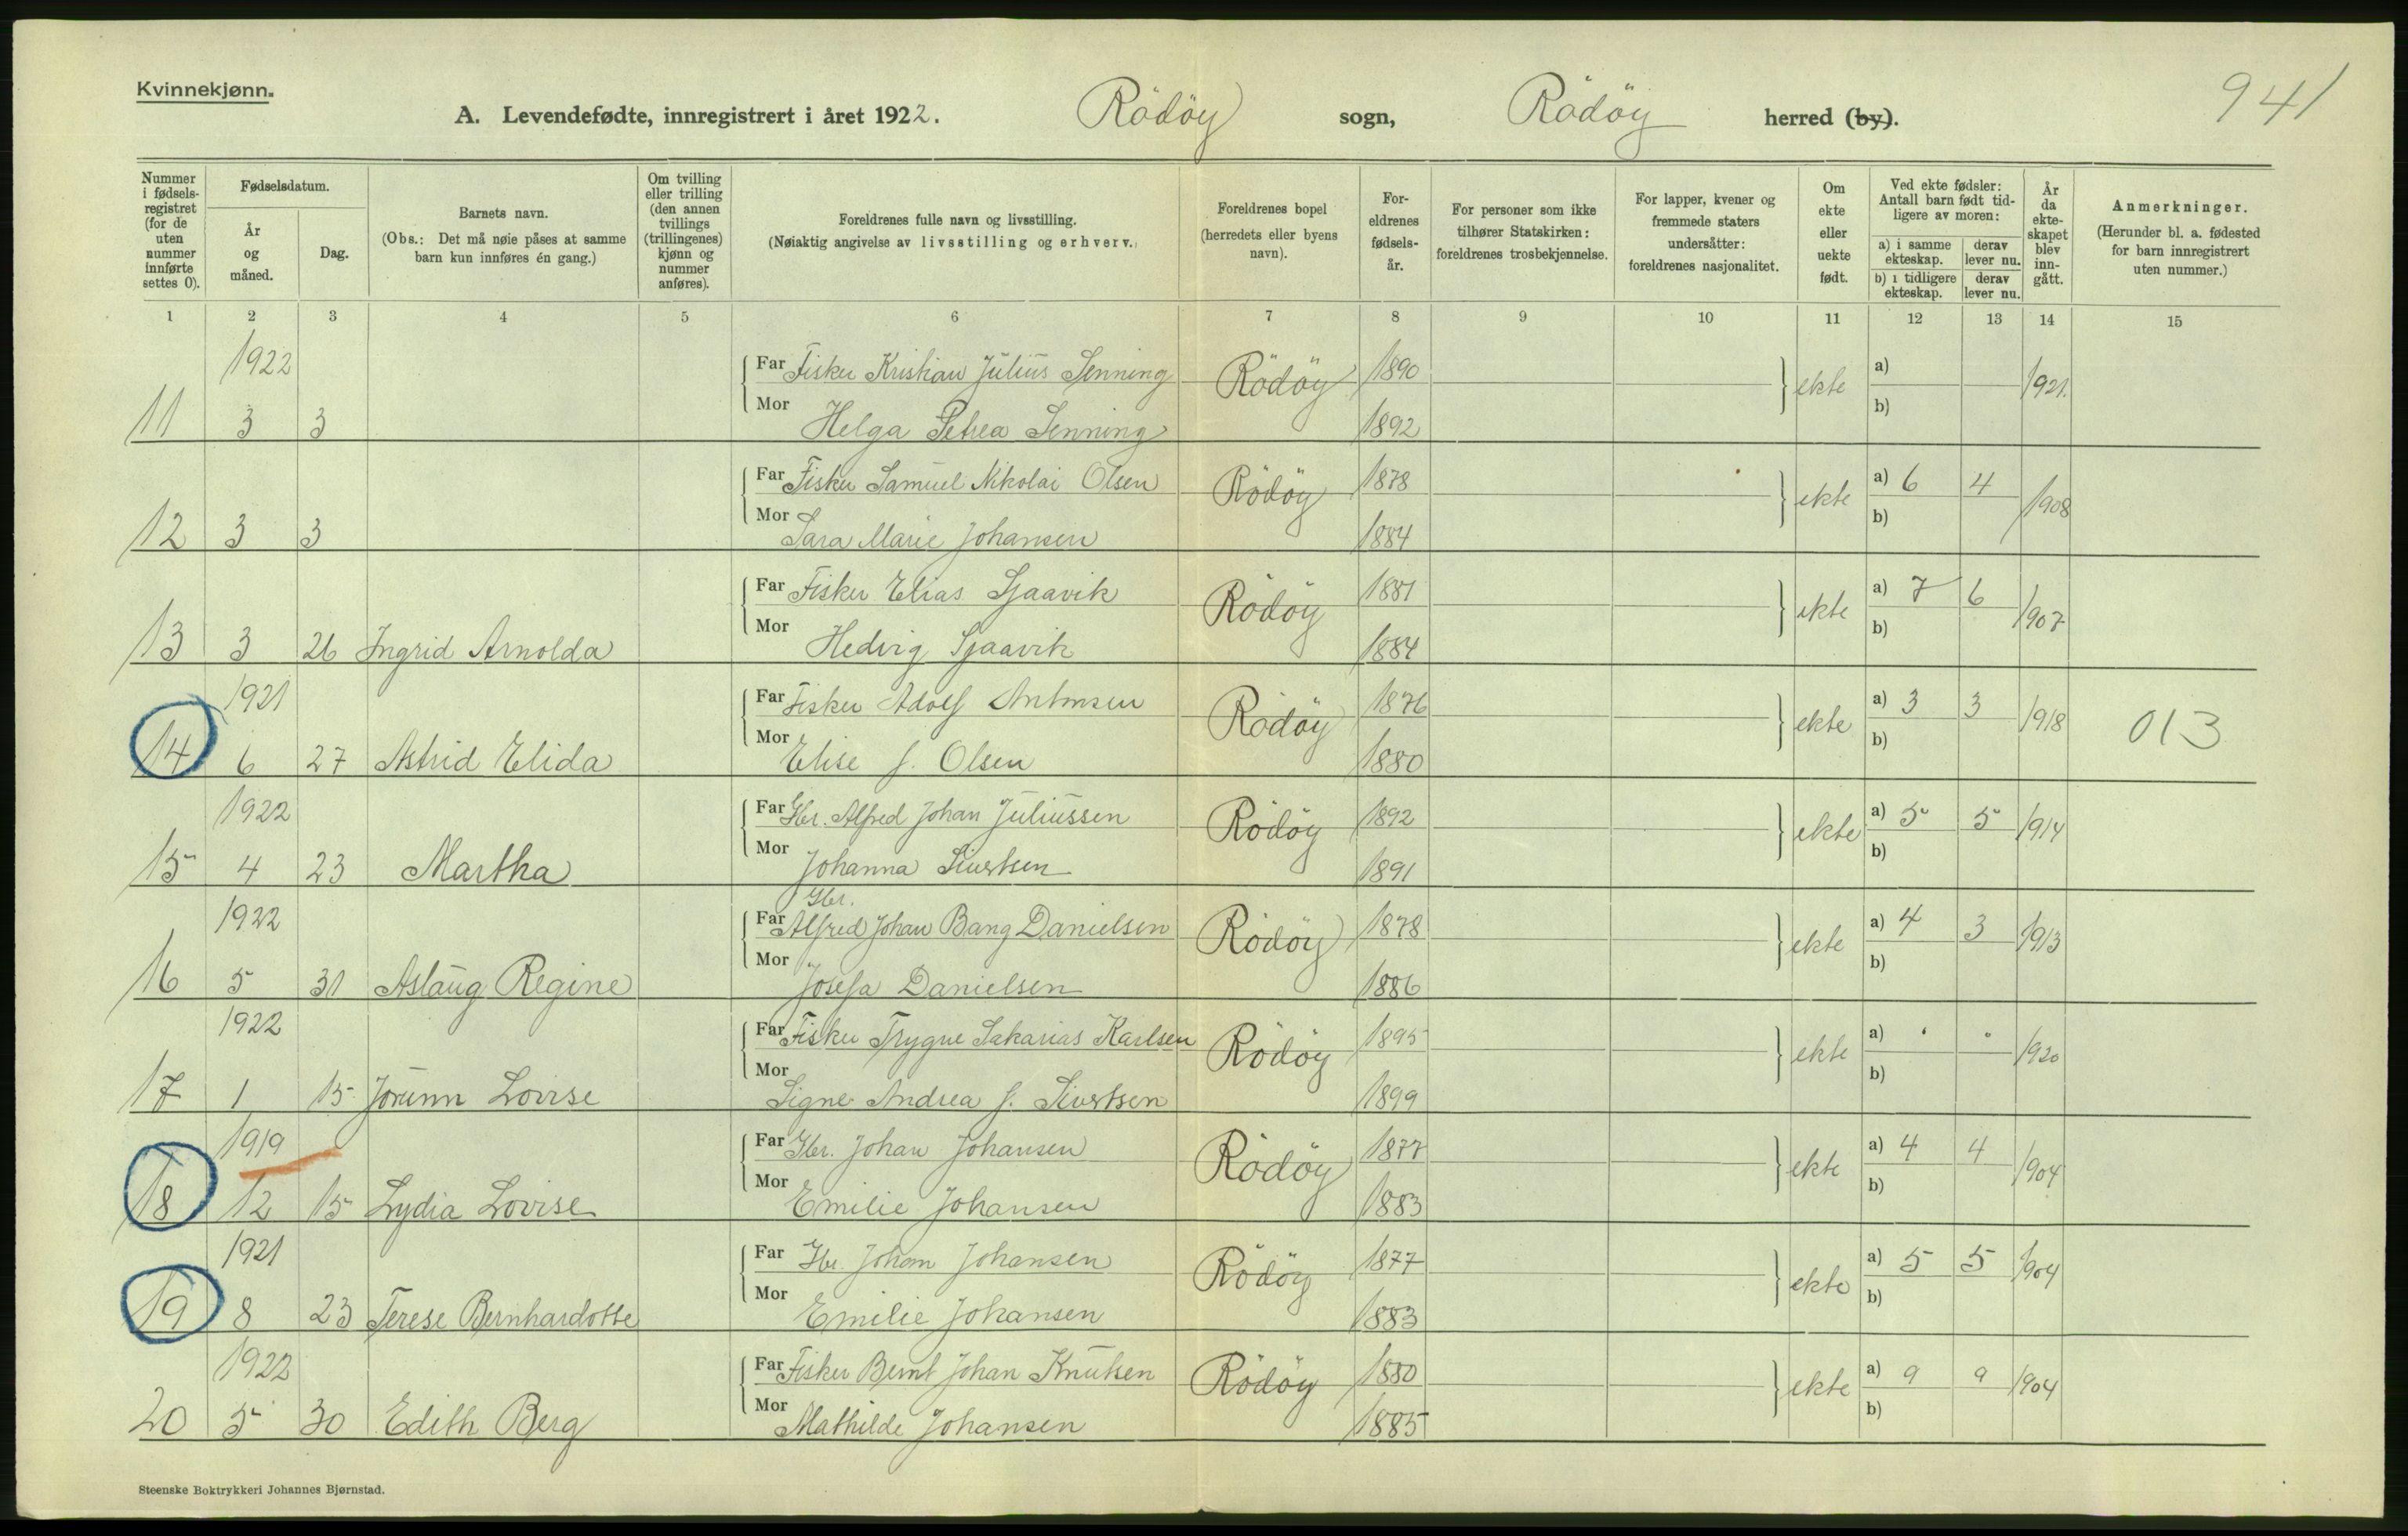 Kvinnekjønn.
941
A. Levendefødte, innregistrert i året 1922. Rödöy sogn, Rödöy herred (by).
Nummer i fødsels-registret (for de uten nummer innførte settes 0).
Fødselsdatum.
År og måned.
Dag.
Barnets navn.
(Obs.: Det må nøie påses at samme barn kun innføres én gang.)
Om tvilling eller trilling (den annen tvillings (trillingenes) kjønn og nummer anføres).
Foreldrenes fulle navn og livsstilling.
(Nøiaktig angivelse av livsstilling og erhverv.)
Foreldrenes bopel (herredets eller byens navn).
For-eldrenes fødsels-år.
For personer som ikke tilhører Statskirken: foreldrenes trosbekjennelse.
For lapper, kvener og fremmede staters undersåtter: foreldrenes nasjonalitet.
Om ekte eller uekte født.
Ved ekte fødsler: Antall barn født tid-ligere av moren:
a) i samme ekteskap. derav lever nu.
b) i tidligere ekteskap. derav lever nu.
År da ekte-skapet blev inn-gått.
Anmerkninger.
(Herunder bl. a. fødested for barn innregistrert uten nummer.)
1 2 3 4 5 6 7 8 9 10 11 12 13 14 15
1922 Far Fisker Kristian Julius Senning Rödöy 1890 ekte a) 1921.
11 3 3 Mor Helga Petrea Senning 1892 b)
Far Fisker Samuel Nikolai Olsen Rödöy 1878 ekte a) 6 4 1908
12 3 3 Mor Sara Marie Johansen 1884 b)
Far Fisker Elias Sjaavik Rödöy 1881 ekte a) 7 6 1907
13 3 26 Ingrid Arnolda Mor Hedvig Sjaavik 1884 b)
1921 Far Fisker Adolf Antonsen Rödöy 1876 ekte a) 3 3 1918 013
14 6 27 Astrid Elida Mor Elise J. Olsen 1880 b)
1922 Far Gbr. Alfred Johan Juliussen Rödöy 1892 ekte a) 5 5 1914
15 4 23 Martha Mor Johanna Sivertsen 1891 b)
Gbr.
1922 Far Alfred Johan Bang Danielsen Rödöy 1878 ekte a) 4 3 1913
16 5 31 Aslaug Regine Mor Josefa Danielsen 1886 b)
1922 Far Fisker Trygve Sakarias Karlsen Rödöy 1895 ekte a) 1920
17 1 15 Jorunn Lovise Mor Signe Andrea J. Sivertsen 1899 b)
1919 Far Gbr. Johan Johansen Rödöy 1877 ekte a) 4 4 1904
18 12 15 Lydia Lovise Mor Emilie Johansen 1883 b)
1921 Far Gbr. Johan Johansen Rödöy 1877 ekte a) 5 5 1904
19 8 23 Terese Bernhardotte Mor Emilie Johansen 1883 b)
1922 Far Fisker Bernt Johan Knutsen Rödöy 1880 ekte a) 9 9 1904
20 5 30 Edith Berg Mor Mathilde Johansen 1885 b)
Steenske Boktrykkeri Johannes Bjørnstad.